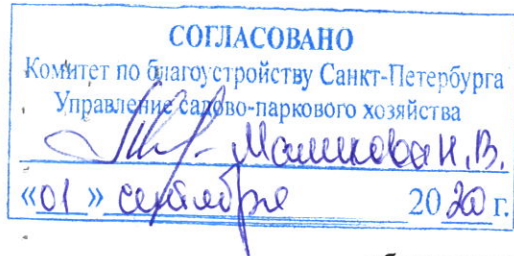 СОГЛАСОВАНО
Комитет по благоустройству Санкт-Петербурга
Управление садово-паркового хозяйства
Н.В.
«01» сентября 2020 г.